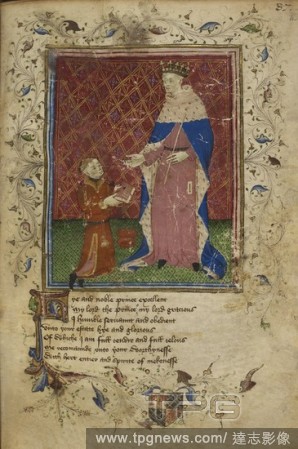 37
Hye and noble prince excellent
My lord the prince my lord gracious
I humble servaunt and obedient
Unto your estate hye and glorious
Of whiche I am full tendir and full ielous
Me recomaunde unto your worthynesse
With hert entier and spirite of mekenesse
TPG
www.tpgnews.com/達志影像